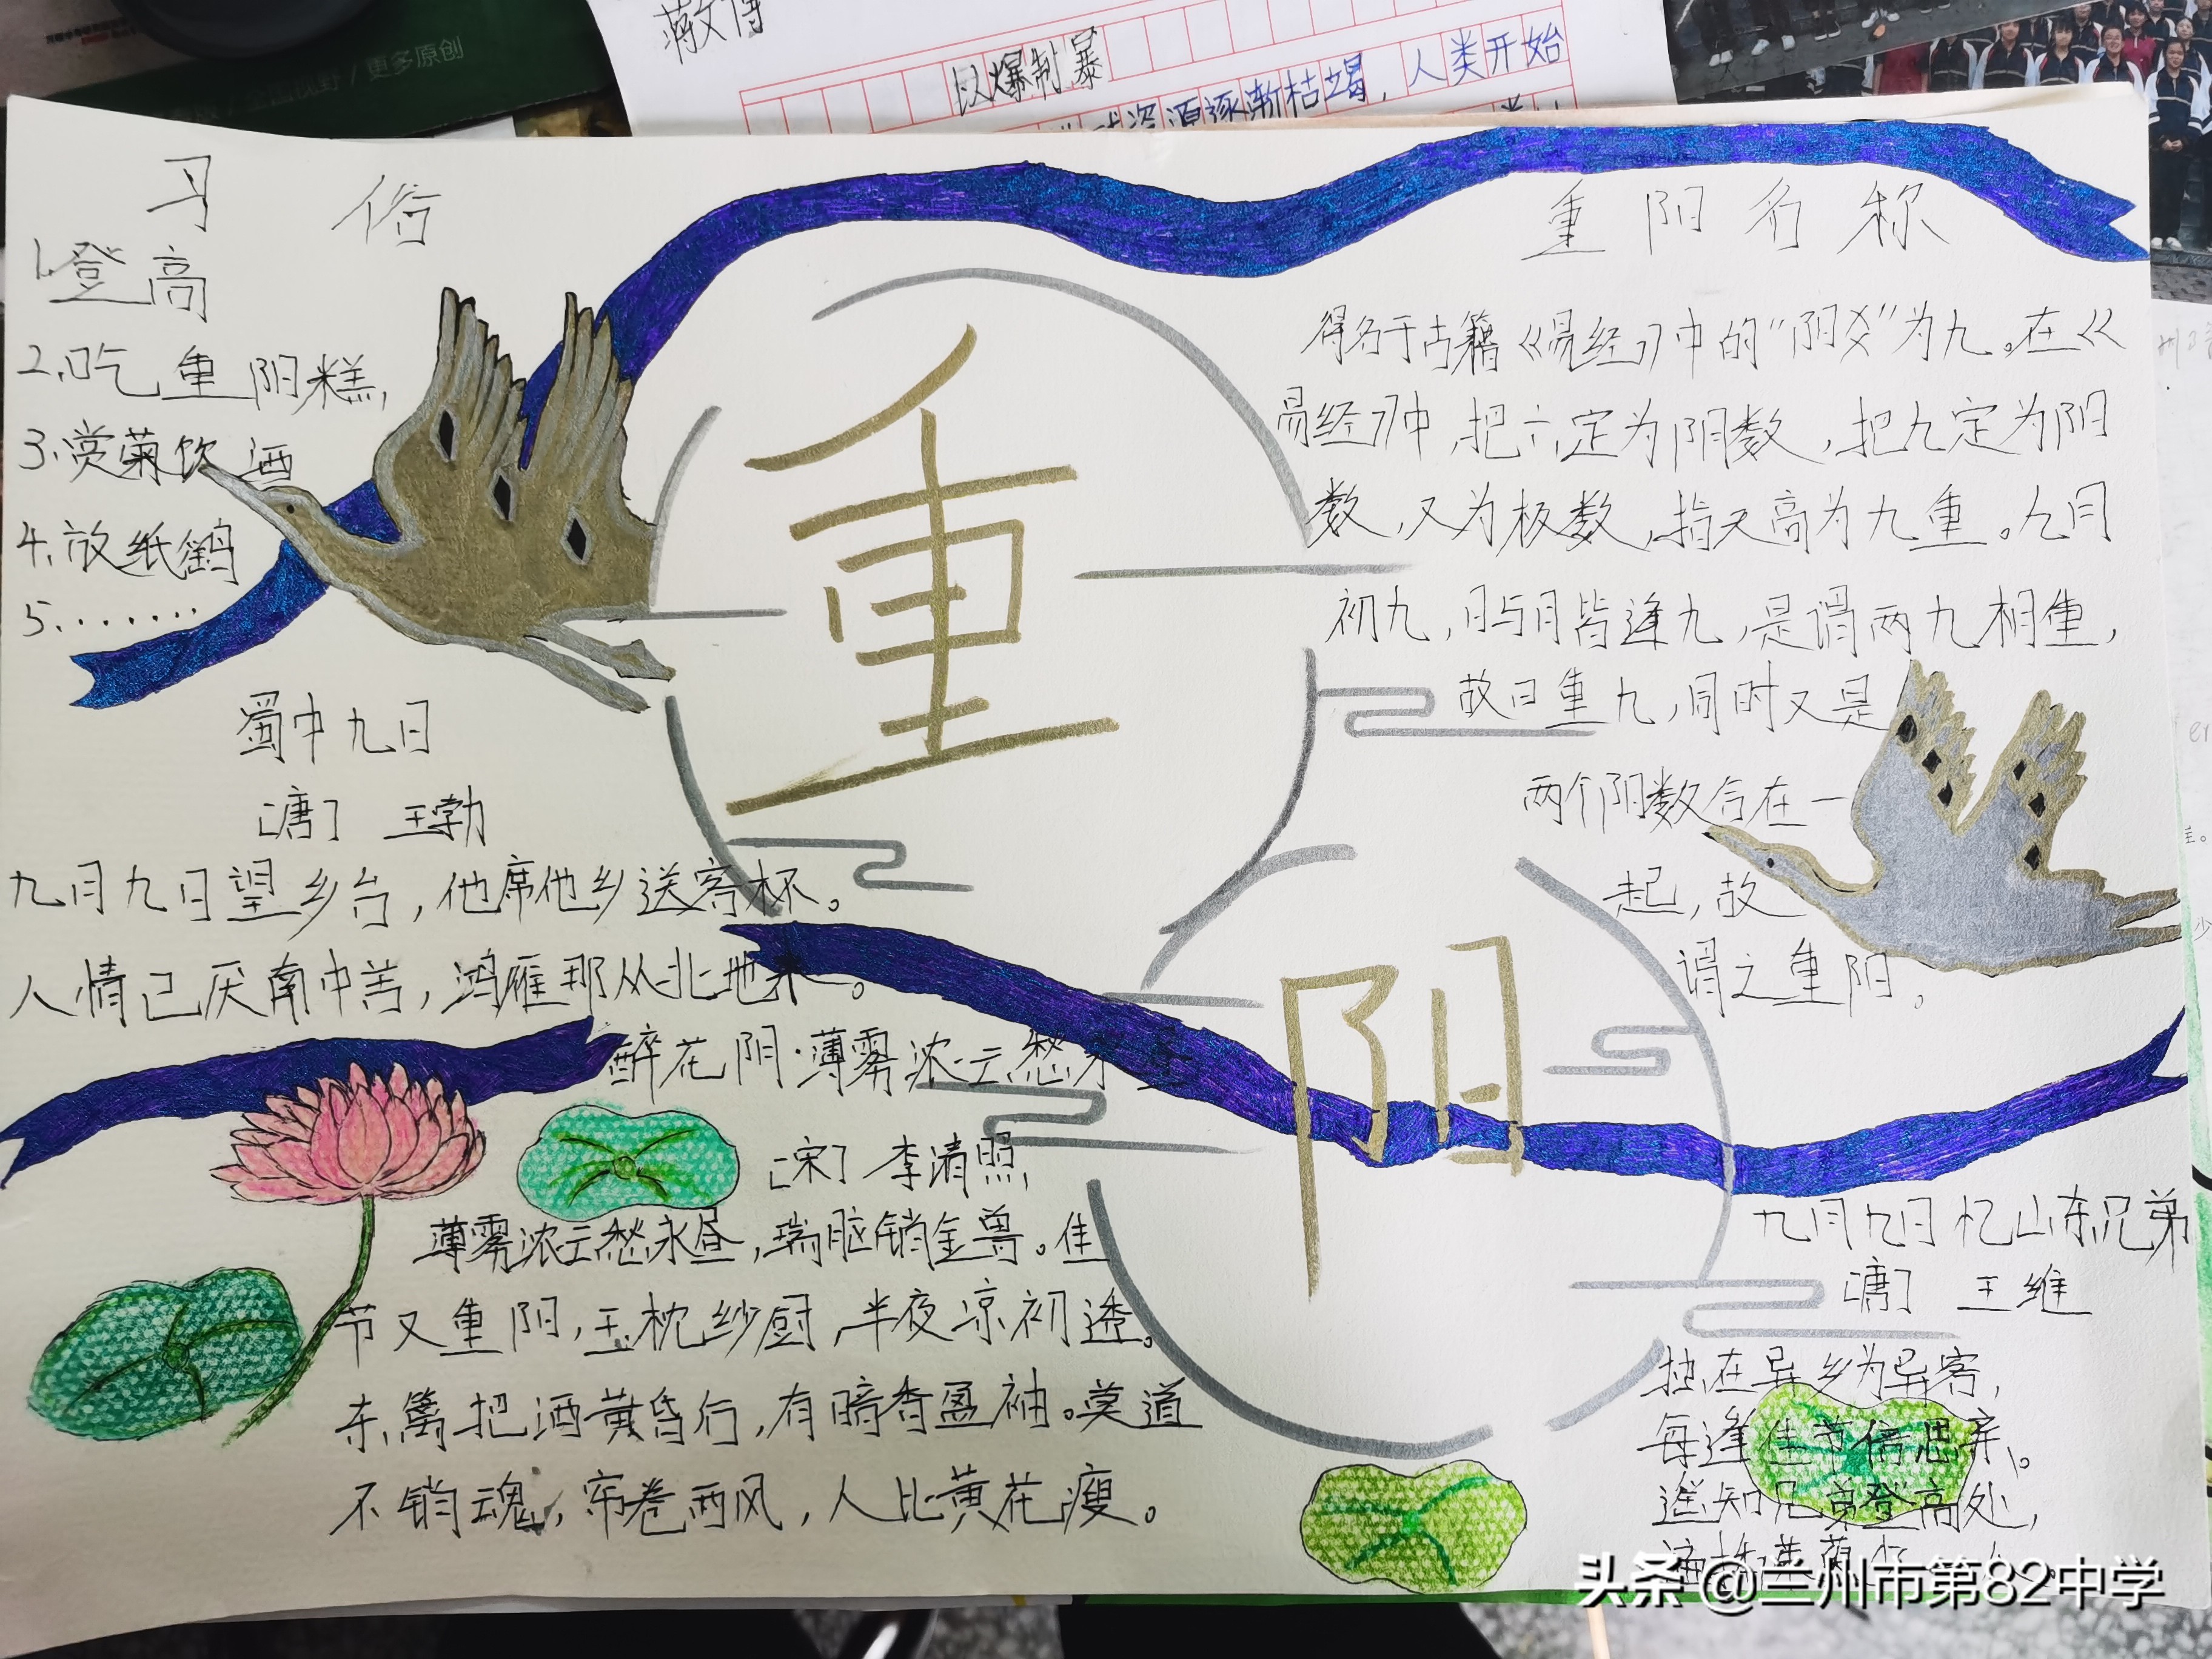 全国视野 / 更多原创
蒋文博
以爆制暴
资源逐渐枯竭，人类开始
习 俗
1.登高
2.吃重阳糕,
3.赏菊饮酒
4.放纸鹞
5.......
蜀中九日
[唐] 王勃
九月九日望乡台，他席他乡送客杯。
人情已厌南中苦，鸿雁那从北地来。
重
阳
重阳名称
得名于古籍《易经》中的“阳爻”为九。在《
易经》中，把六定为阴数，把九定为阳
数，又为极数，指天高为九重。九月
初九，日与月皆逢九，是谓两九相重，
故曰重九，同时又是
两个阳数合在一
起，故
谓之重阳。
醉花阴·薄雾浓云愁永昼
[宋] 李清照
薄雾浓云愁永昼，瑞脑销金兽。佳
节又重阳，玉枕纱厨，半夜凉初透。
东篱把酒黄昏后，有暗香盈袖。莫道
不销魂，帘卷西风，人比黄花瘦。
九月九日忆山东兄弟
[唐] 王维
独在异乡为异客，
每逢佳节倍思亲。
遥知兄弟登高处，
遍插茱萸少一人。
头条 @兰州市第82中学